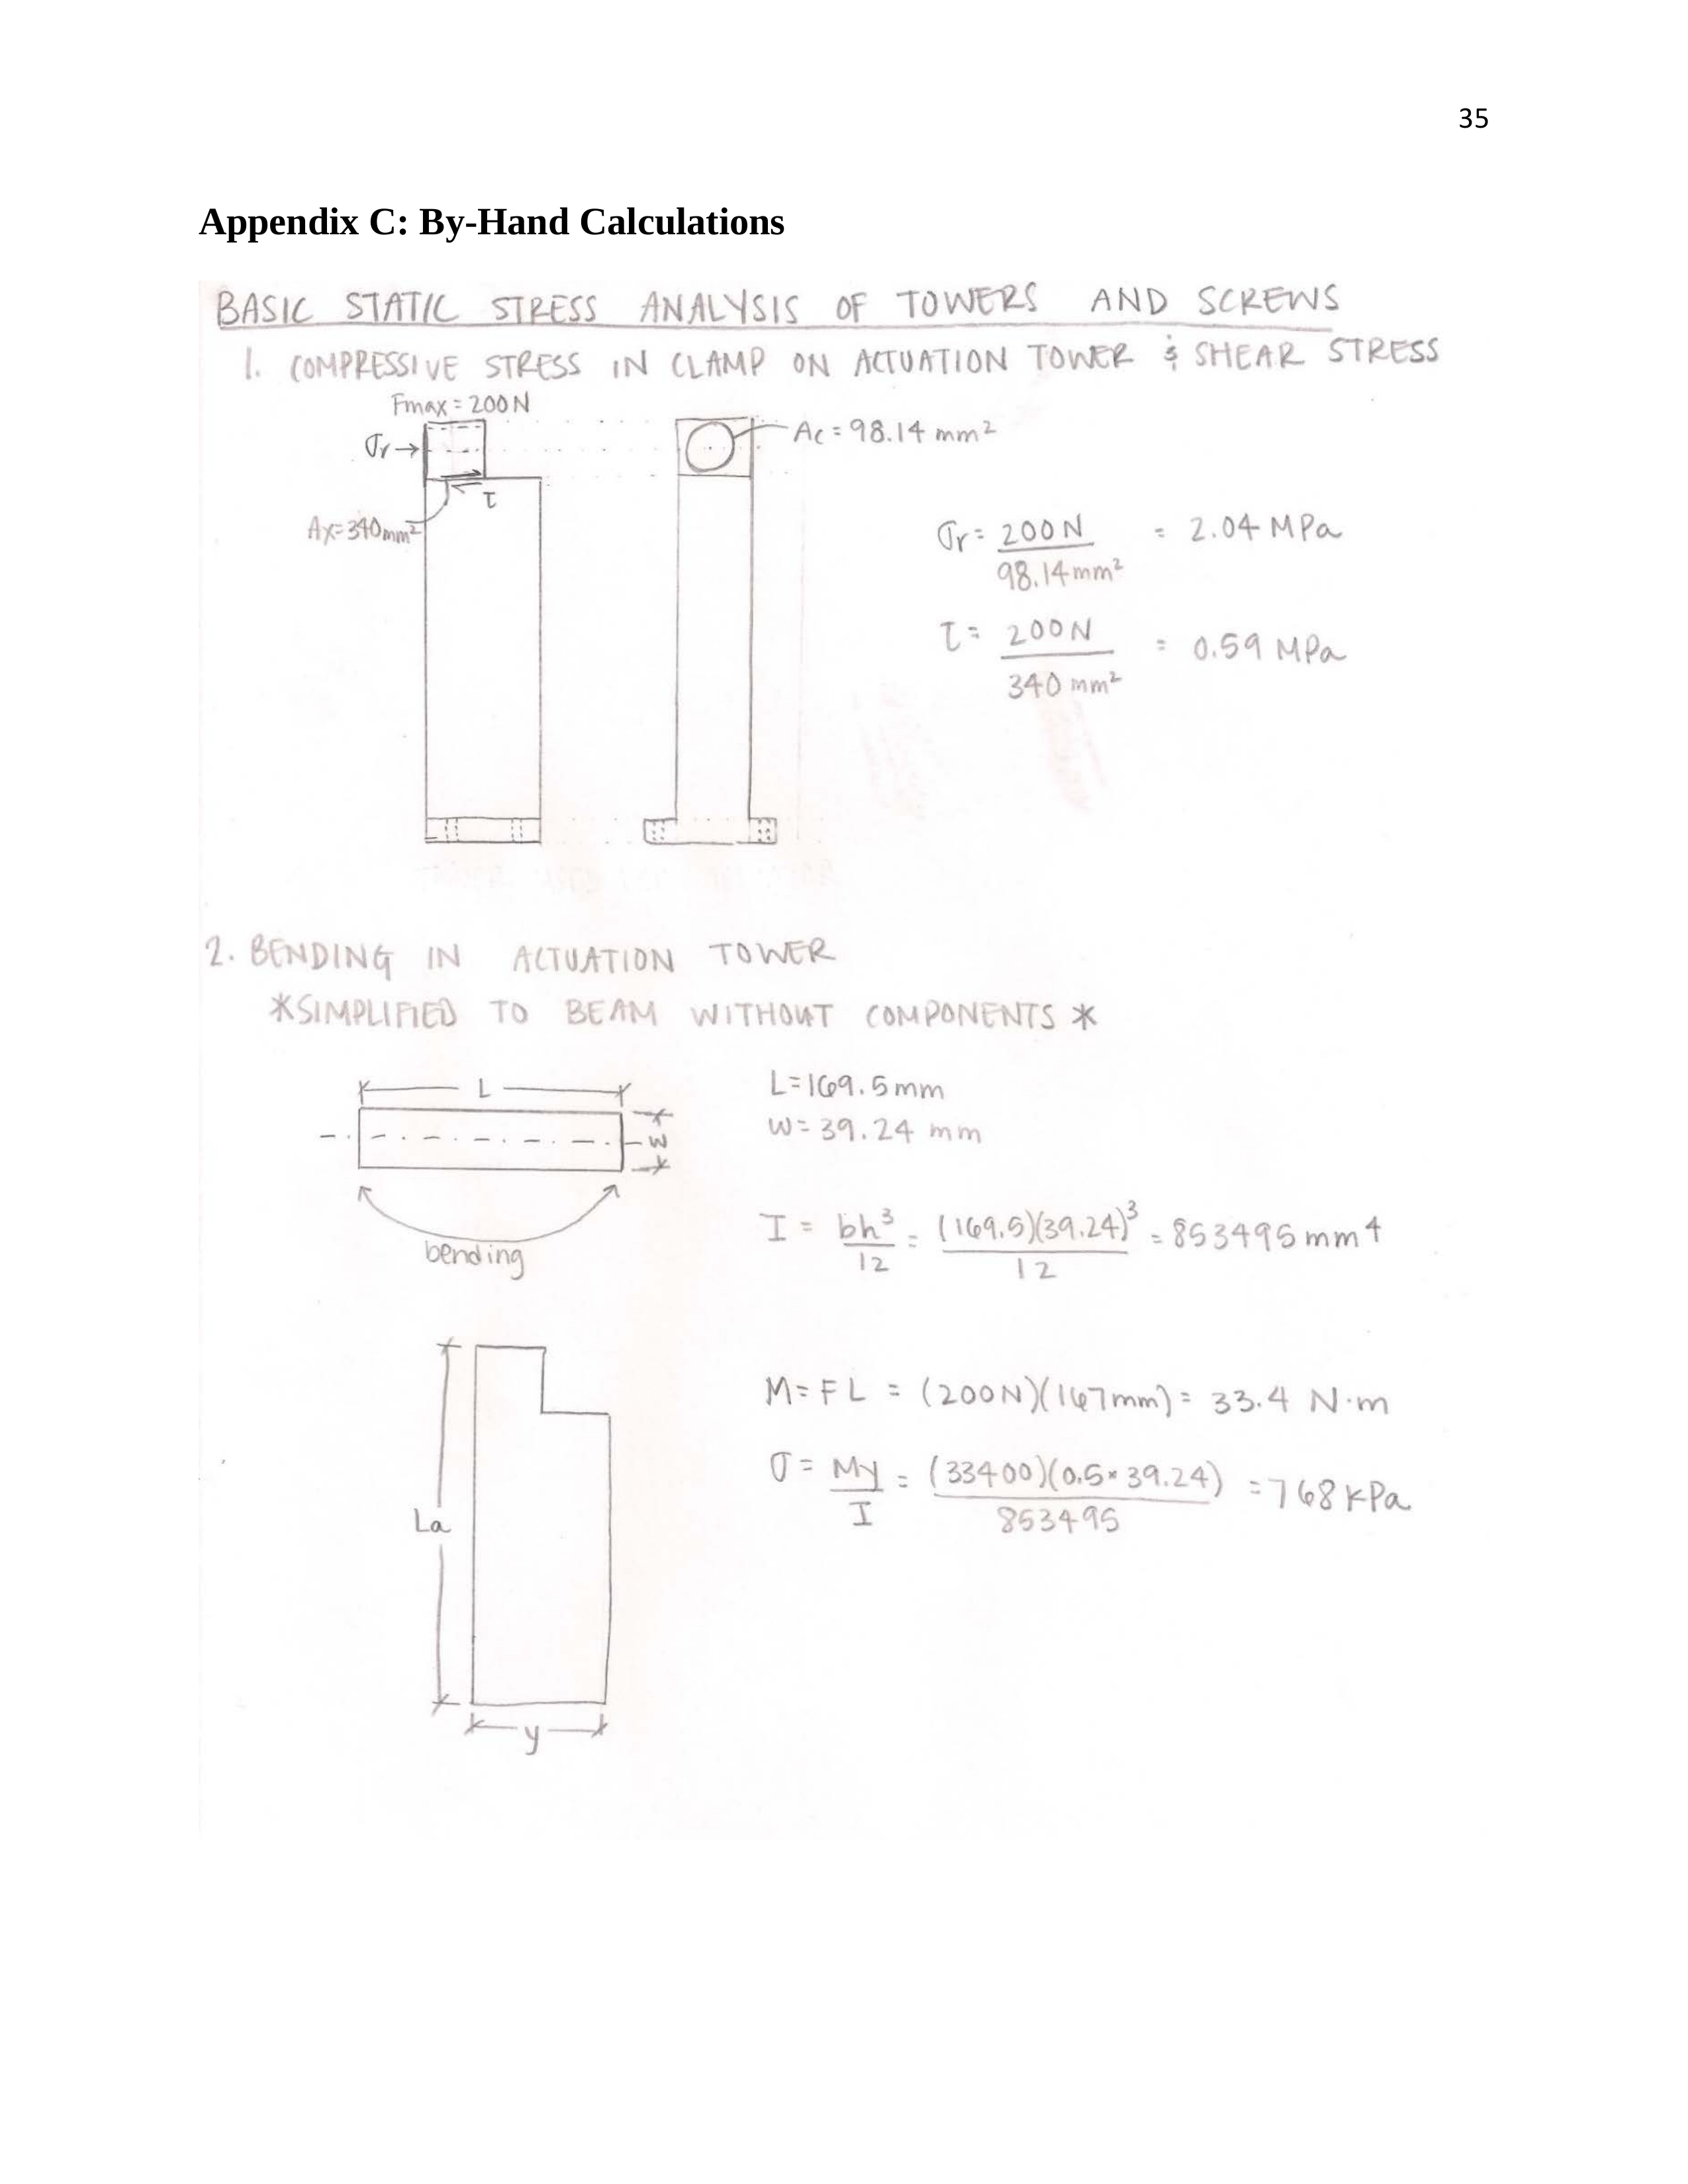 35
Appendix C: By-Hand Calculations
BASIC STATIC STRESS ANALYSIS OF TOWERS AND SCREWS
1. COMPRESSIVE STRESS IN CLAMP ON ACTUATION TOWER & SHEAR STRESS
Fmax = 200N
σr →
Ac = 98.14 mm²
τ
Ax=340mm²
σr = 200N / 98.14mm² = 2.04 MPa
τ = 200N / 340 mm² = 0.59 MPa
2. BENDING IN ACTUATION TOWER
*SIMPLIFIED TO BEAM WITHOUT COMPONENTS *
L
w
bending
L=169.5mm
w= 39.24 mm
I = bh³/12 = (169.5)(39.24)³/12 = 853495 mm⁴
La
y
M= FL = (200N)(167mm) = 33.4 N·m
σ = My/I = (33400)(0.5*39.24)/853495 = 768 kPa